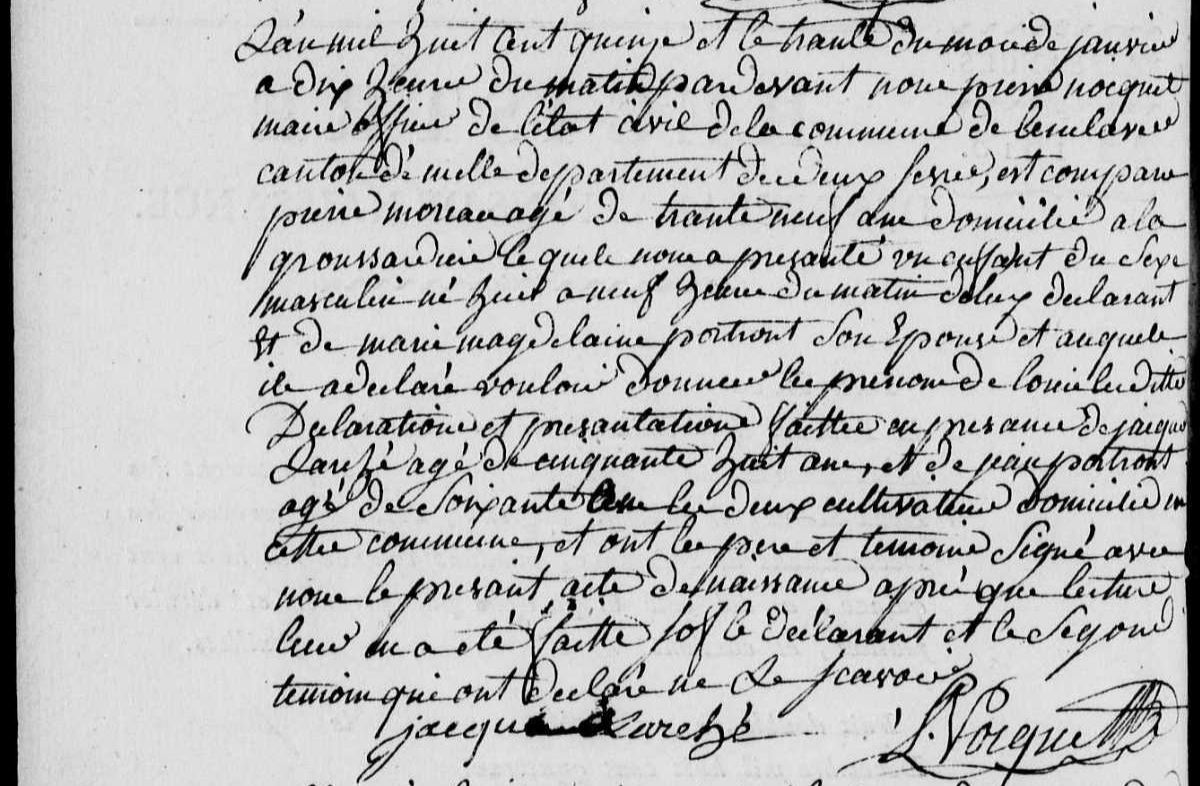 L'an mil huit cent quinze et le trante du moi de janvier
a dix heure du matin par devant nous pierre nocquet
maire officier de l'état civil de la commune de
canton de melle departement de deux sevre, est comparu
pierre moreau agé de trante neuf ans domicilié a la
groussardiere le quele nous a presanté un enfant du sexe
masculin né huit a neuf heure du matin de luy declarant
Et de marie magdelaine portront son Epouse et auquele
il a declaré vouloir donner le prenom de louis le ditte
Declaratione et presantatione faitte en presance de jacque
Larché agé de cinquante huit ans, et de jean portront
agé de soixante ans le deux cultivateur domicilié en
cette commune, et ont le pere et temoins signé avec
nous le presant acte de naissance aprés que lecture
leur en a été faitte sof le declarant et le segond
temoin qui ont declaré ne le scavoir
jacque Larché P. Nocquet